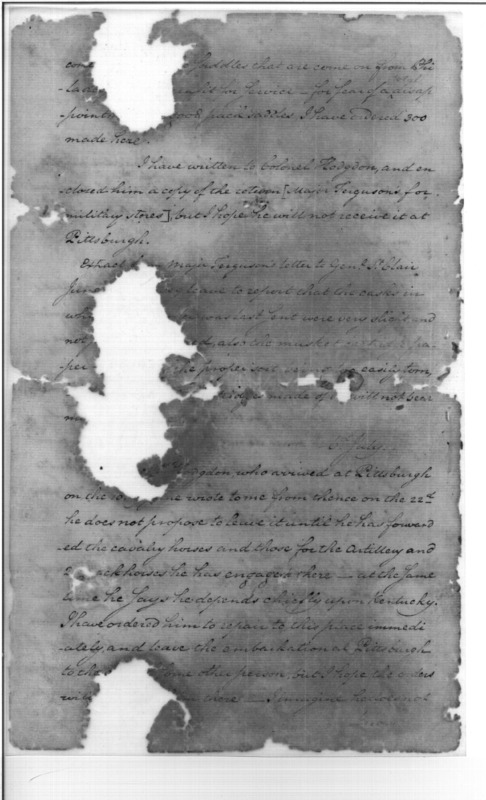 come saddles that are come on from Phi
-lad in Service — for fear of a
-point pack saddles, I have ordered 300
made here.
I have written to Colonel Hodgdon, and en
closed him a copy of the [Major Ferguson's for
military stores] but I hope he will not receive it at
Pittsburgh.
Extract Major Ferguson's letter to Genl. St. Clair
leave to report that the casks in
was last sent were very slight, and
not ed, also the musket
per the paper sent so easily torn,
made of will not bear
Hogdon, who arrived at Pittsburgh
on the wrote to me from thence on the 22d.
he does not propose to leave it until he has forward
-ed the cavalry horses and those for the Artillery and
pack horses he has engaged there — at the same
time he says he depends chiefly upon Kentucky.
I have ordered him to repair to this place immedi
-ately, and leave the embarkation at Pittsburgh
to the some other person, but I hope the orders
will there — I imagine he does not